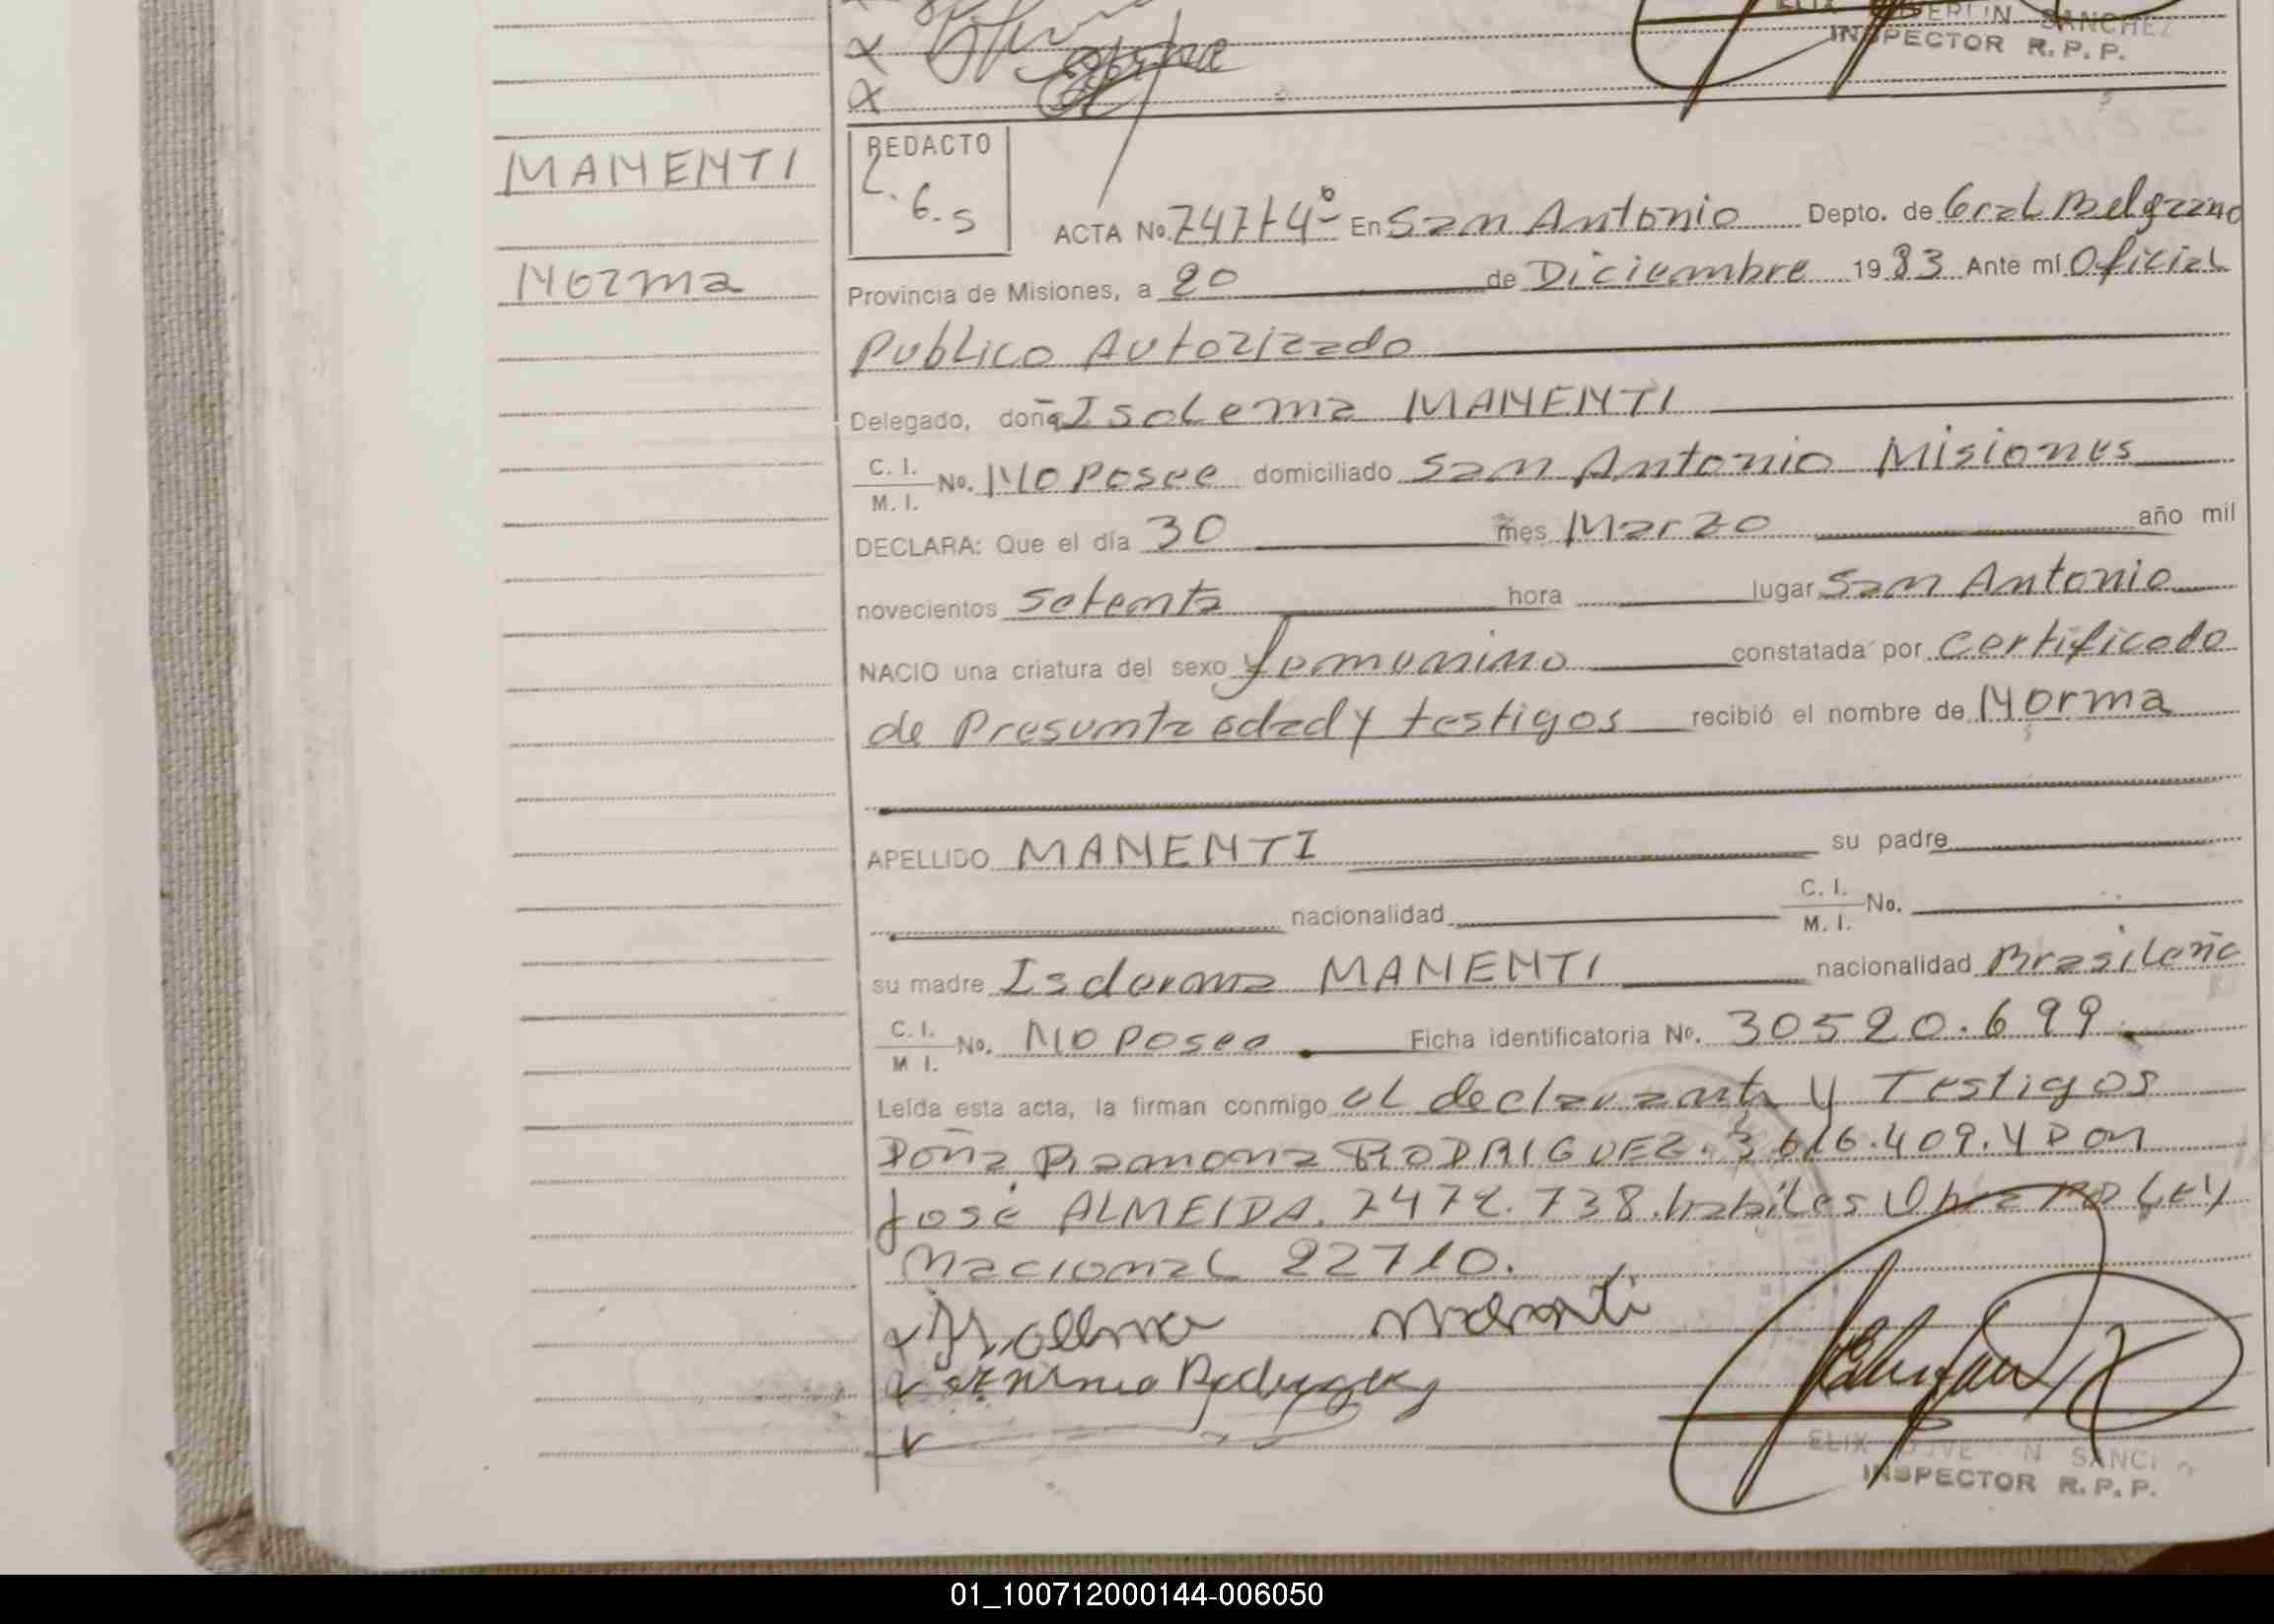 SANCHEZ
INSPECTOR R. P. P.
MANENTI
Norma
REDACTO
L. G. S
ACTA No. 747 T 4º En San Antonio Depto. de Gral Belgrano
Provincia de Misiones, a 20 de Diciembre 1983 Ante mí Oficial
Publico Autorizado
Delegado, doña Isolema MANENTI
C. I.
M. I. No. No Posee domiciliado San Antonio Misiones
DECLARA: Que el día 30 mes Marzo año mil
novecientos setenta hora lugar San Antonio
NACIO una criatura del sexo femenino constatada por certificado
de Presunta edad y testigos recibió el nombre de Norma
APELLIDO MANENTI su padre
nacionalidad C. I.
M. I. No.
su madre MANENTI nacionalidad Brasileña
C. I.
M I. No. No posee Ficha identificatoria No. 30520.699
Leída esta acta, la firman conmigo el declarante y Testigos
Doña Ramona RODRIGUEZ. 3 616.409. y Don
José ALMEIDA. 7472.738. habiles Ley
Nacional 22710.
INSPECTOR R. P. P.
01_100712000144-006050